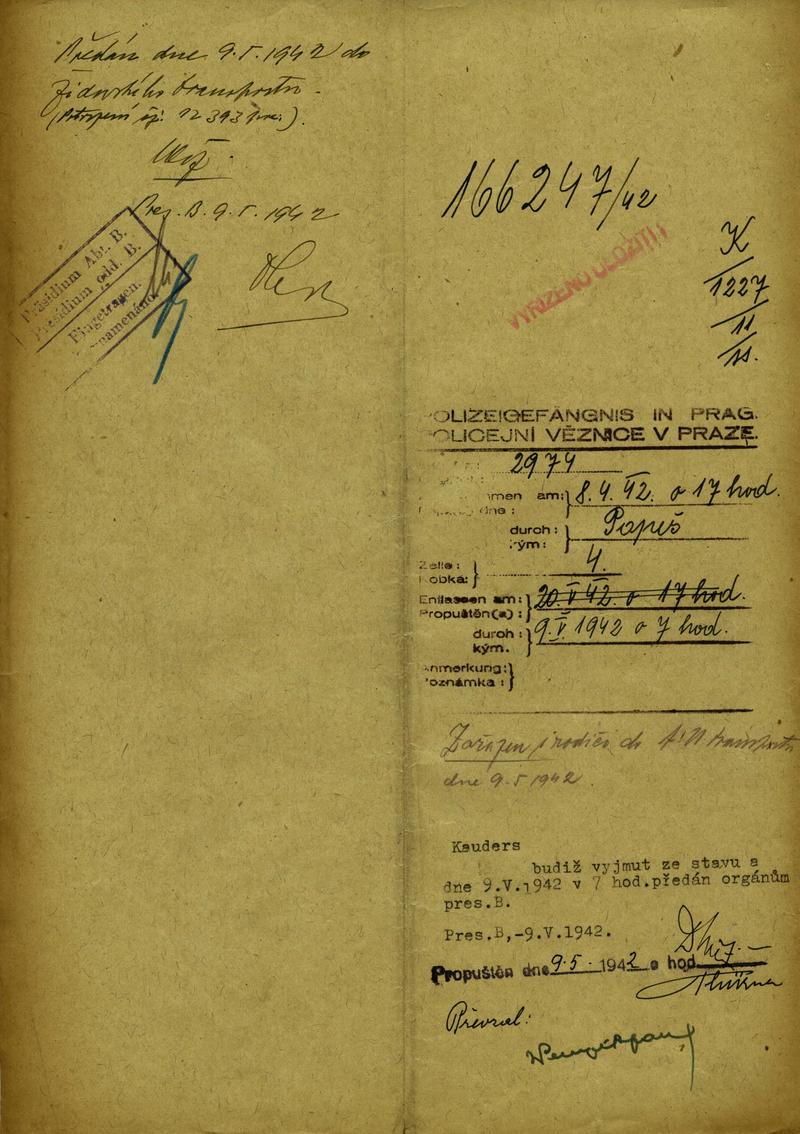 Předán dne 9.V.1942 do
židovského transportu.
12 393
Prez. B. 9.V.1942
Präsidium Abt. B.
Presidium odd. B.
Eingetragen.
166247/42
VYŘÍZENO ULOŽITI
K
1227
11
POLIZEIGEFÄNGNIS IN PRAG.
POLICEJNÍ VĚZNICE V PRAZE.
2974
men am: 8.4.42. o 17 hod.
dne:
durch: Papeš
kým:
Zelle: 4.
kobka:
Entlassen am: 20.V 42. o 17 hod.
Propuštěn(a):
durch: 9.V. 1942 o 7 hod.
kým.
Anmerkung:
Poznámka:
Zařazen s rodiči do transportu
dne 9.5 1942.
Kauders
budiž vyjmut ze stavu a
dne 9.V.1942 v 7 hod.předán orgánům
pres.B.
Pres.B,-9.V.1942.
Propuštěn dne 9.5. 1942 o hod.
Převzal: